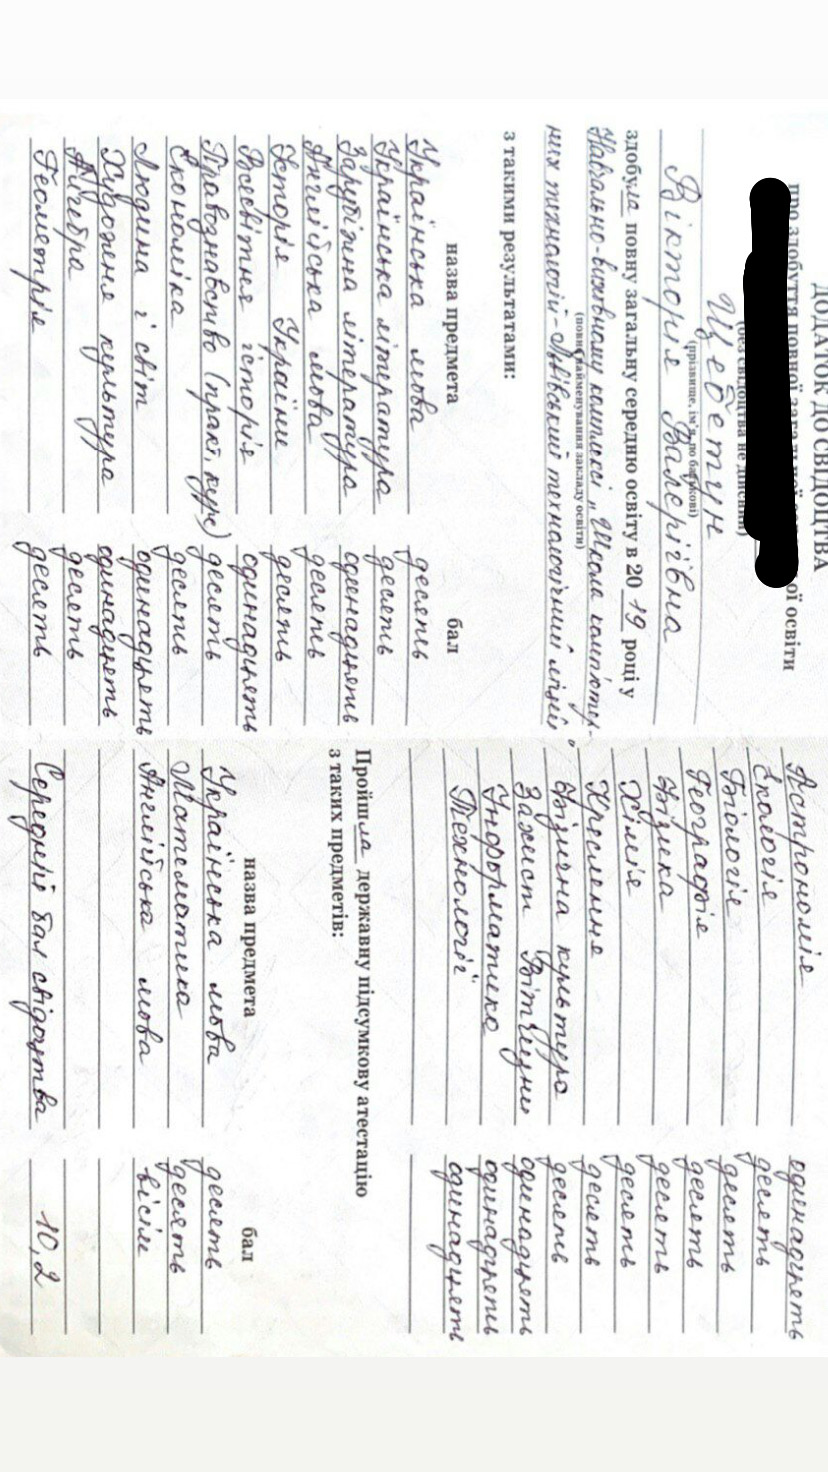 ДОДАТОК ДО СВІДОЦТВА
про здобуття повної загальної ої освіти
(без свідоцтва не дійсний)
Щебетун
(прізвище, ім'я, по батькові)
Вікторія Валеріївна
здобула повну загальну середню освіту в 2019 році у
Навчально-виховному комплексі „Школа комп'ютер
(повне найменування закладу освіти)
них технологій - Львівський технологічний ліцей"
з такими результатами:
назва предмета бал
Українська мова десять
Українська література десять
Зарубіжна література одинадцять
Англійська мова десять
Історія України десять
Всесвітня історія одинадцять
Правознавство (практ. курс) десять
Економіка десять
Людина і світ одинадцять
Художня культура одинадцять
Алгебра десять
Геометрія десять
Астрономія одинадцять
Екологія десять
Біологія десять
Географія десять
Фізика десять
Хімія десять
Креслення десять
Фізична культура десять
Захист Вітчизни одинадцять
Інформатика одинадцять
Технології одинадцять
Пройшла державну підсумкову атестацію
з таких предметів:
назва предмета бал
Українська мова десять
Математика десять
Англійська мова вісім
Середній бал свідоцтва 10,2